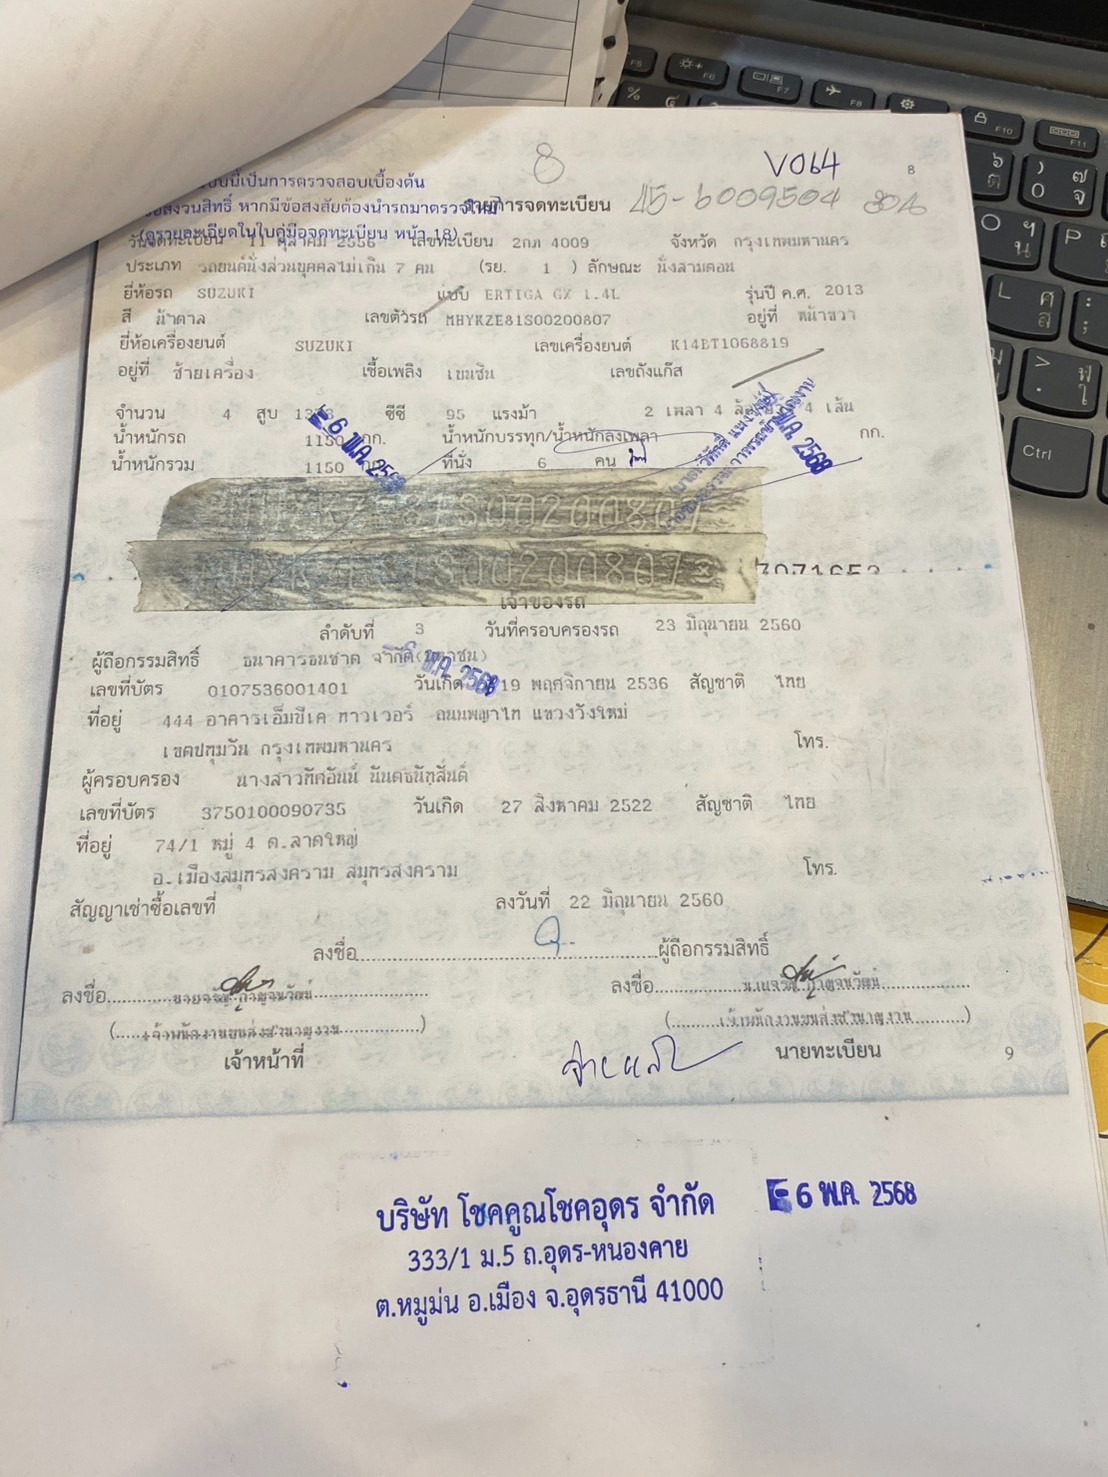 8
V064
8
บบนี้เป็นการตรวจสอบเบื้องต้น
ขอสงวนสิทธิ์ หากมีข้อสงสัยต้องนำรถมาตรวจใหม่
(ดูรายละเอียดในใบคู่มือจดทะเบียน หน้า 18)
รายการจดทะเบียน 45-6009504
วันจดทะเบียน 11 ตุลาคม 2556 เลขทะเบียน 2กภ 4009 จังหวัด กรุงเทพมหานคร
ประเภท รถยนต์นั่งส่วนบุคคลไม่เกิน 7 คน (รย. 1 ) ลักษณะ นั่งสามตอน
ยี่ห้อรถ SUZUKI แบบ ERTIGA GX 1.4L รุ่นปี ค.ศ. 2013
สี น้ำตาล เลขตัวรถ MHYKZE81S00200807 อยู่ที่ หน้าขวา
ยี่ห้อเครื่องยนต์ SUZUKI เลขเครื่องยนต์ K14BT1068819
อยู่ที่ ซ้ายเครื่อง เชื้อเพลิง เบนซิน เลขถังแก๊ส
จำนวน 4 สูบ 1373 ซีซี 95 แรงม้า 2 เพลา 4 ล้อ 4 เส้น
น้ำหนักรถ 1150 กก. น้ำหนักบรรทุก/น้ำหนักลงเพลา กก.
น้ำหนักรวม 1150 กก. ที่นั่ง 6 คน
6 พ.ค. 2568
พ.ค. 2568
S00200807
S00200807
เจ้าของรถ
ลำดับที่ 3 วันที่ครอบครองรถ 23 มิถุนายน 2560
ผู้ถือกรรมสิทธิ์ ธนาคารธนชาต จำกัด(มหาชน)
พ.ค. 2568
เลขที่บัตร 0107536001401 วันเกิด 19 พฤศจิกายน 2536 สัญชาติ ไทย
ที่อยู่ 444 อาคารเอ็มบีเค ทาวเวอร์ ถนนพญาไท แขวงวังใหม่
เขตปทุมวัน กรุงเทพมหานคร โทร.
ผู้ครอบครอง นางสาวทัศอันน์ นันตธนัทสันต์
เลขที่บัตร 3750100090735 วันเกิด 27 สิงหาคม 2522 สัญชาติ ไทย
ที่อยู่ 74/1 หมู่ 4 ต.ลาดใหญ่
อ.เมืองสมุทรสงคราม สมุทรสงคราม โทร.
สัญญาเช่าซื้อเลขที่ ลงวันที่ 22 มิถุนายน 2560
ลงชื่อ ผู้ถือกรรมสิทธิ์
ลงชื่อ ลงชื่อ
(เจ้าพนักงานขนส่งชำนาญงาน) (เจ้าพนักงานขนส่งชำนาญงาน)
เจ้าหน้าที่ นายทะเบียน
9
บริษัท โชคคูณโชคอุดร จำกัด
6 พ.ค. 2568
333/1 ม.5 ถ.อุดร-หนองคาย
ต.หมูม่น อ.เมือง จ.อุดรธานี 41000
F5
F6
F7
F8
F10
F11
Ctrl